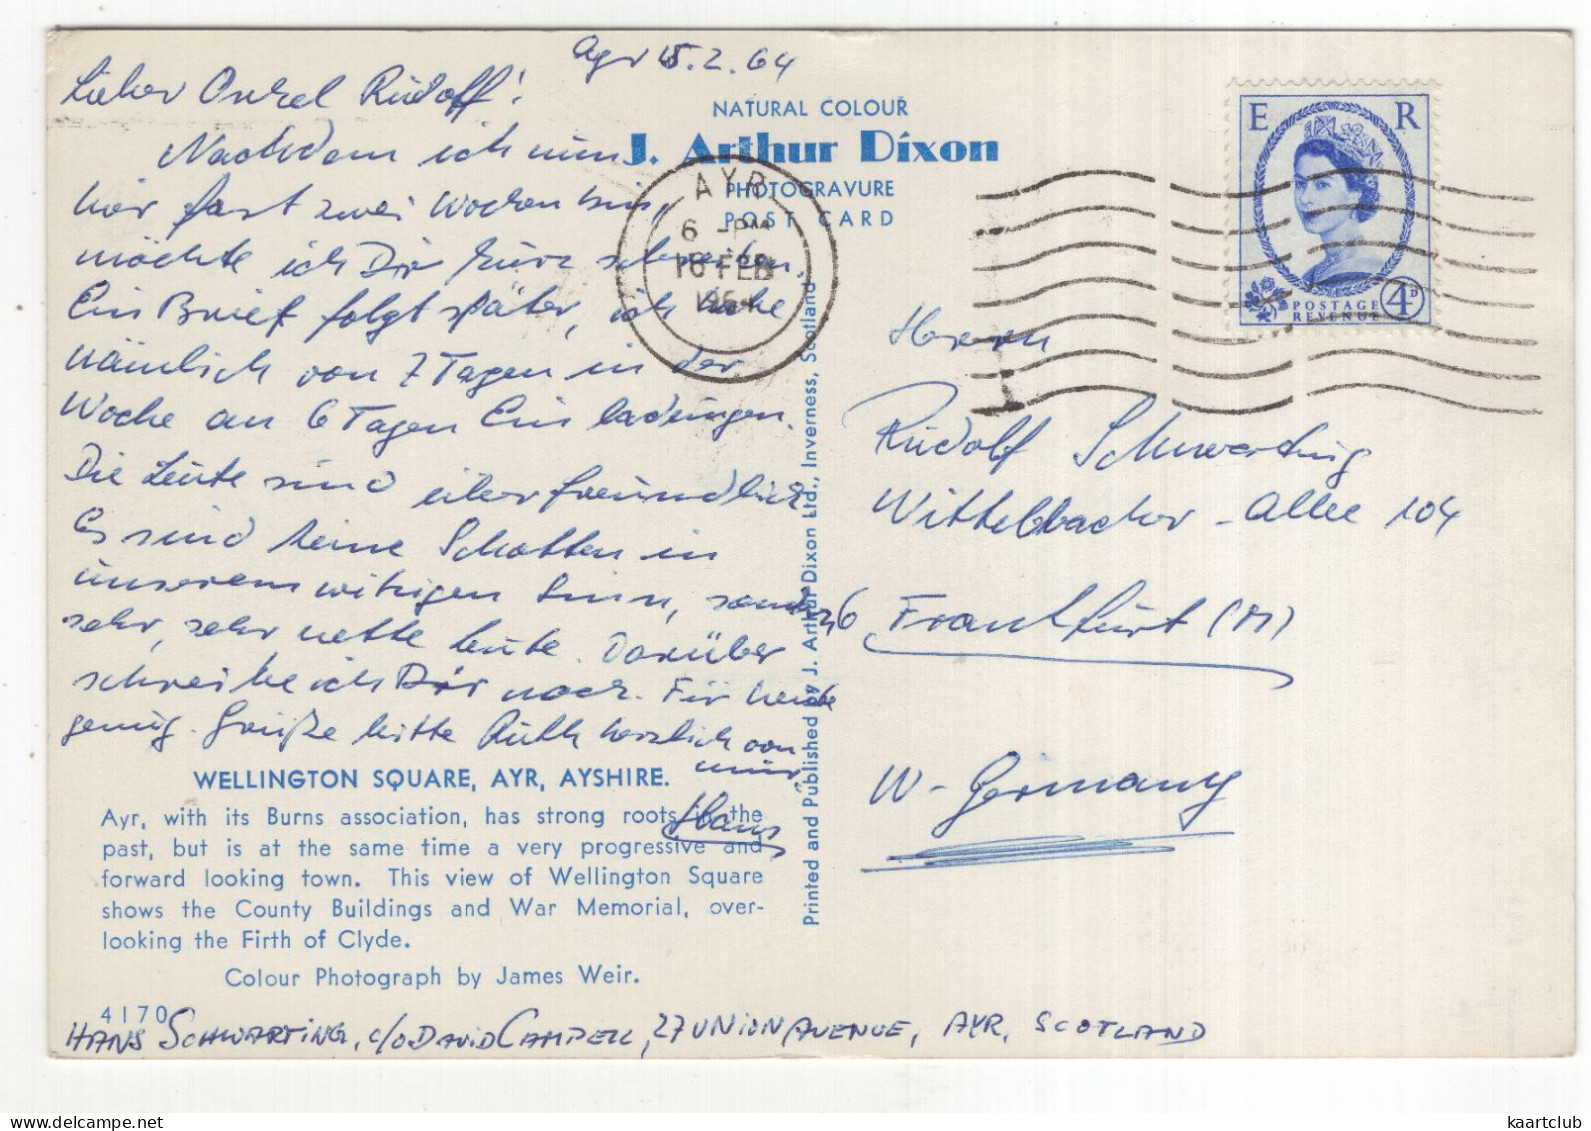 Ayr 15.2.64
Lieber Onkel Rudolf!
Nachdem ich nun
hier fast zwei Wochen bin,
möchte ich Dir kurz schreiben.
Ein Brief folgt später, ich habe
nämlich von 7 Tagen in der
Woche an 6 Tagen Einladungen.
Die Leute sind überfreundlich
Es sind keine Schotten in
unserem witzigen Sinn, sondern
sehr, sehr nette Leute. Darüber
schreibe ich Dir noch. Für heute
genug. Grüße bitte Ruth herzlich von
mir,
Hans
NATURAL COLOUR
J. Arthur Dixon
PHOTOGRAVURE
POST CARD
AYR
6 - PM
16 FEB
1964
E R
POSTAGE
REVENUE
4D
Herrn
Rudolf Schwarting
Wittelsbacher-Allee 104
6 Frankfurt (M)
W-Germany
Printed and Published by J. Arthur Dixon Ltd., Inverness, Scotland
WELLINGTON SQUARE, AYR, AYSHIRE.
Ayr, with its Burns association, has strong roots in the
past, but is at the same time a very progressive and
forward looking town. This view of Wellington Square
shows the County Buildings and War Memorial, over-
looking the Firth of Clyde.
Colour Photograph by James Weir.
4170
HANS SCHWARTING, c/o DAVID CAMPELL, 27 UNION AVENUE, AYR, SCOTLAND
kaartclub